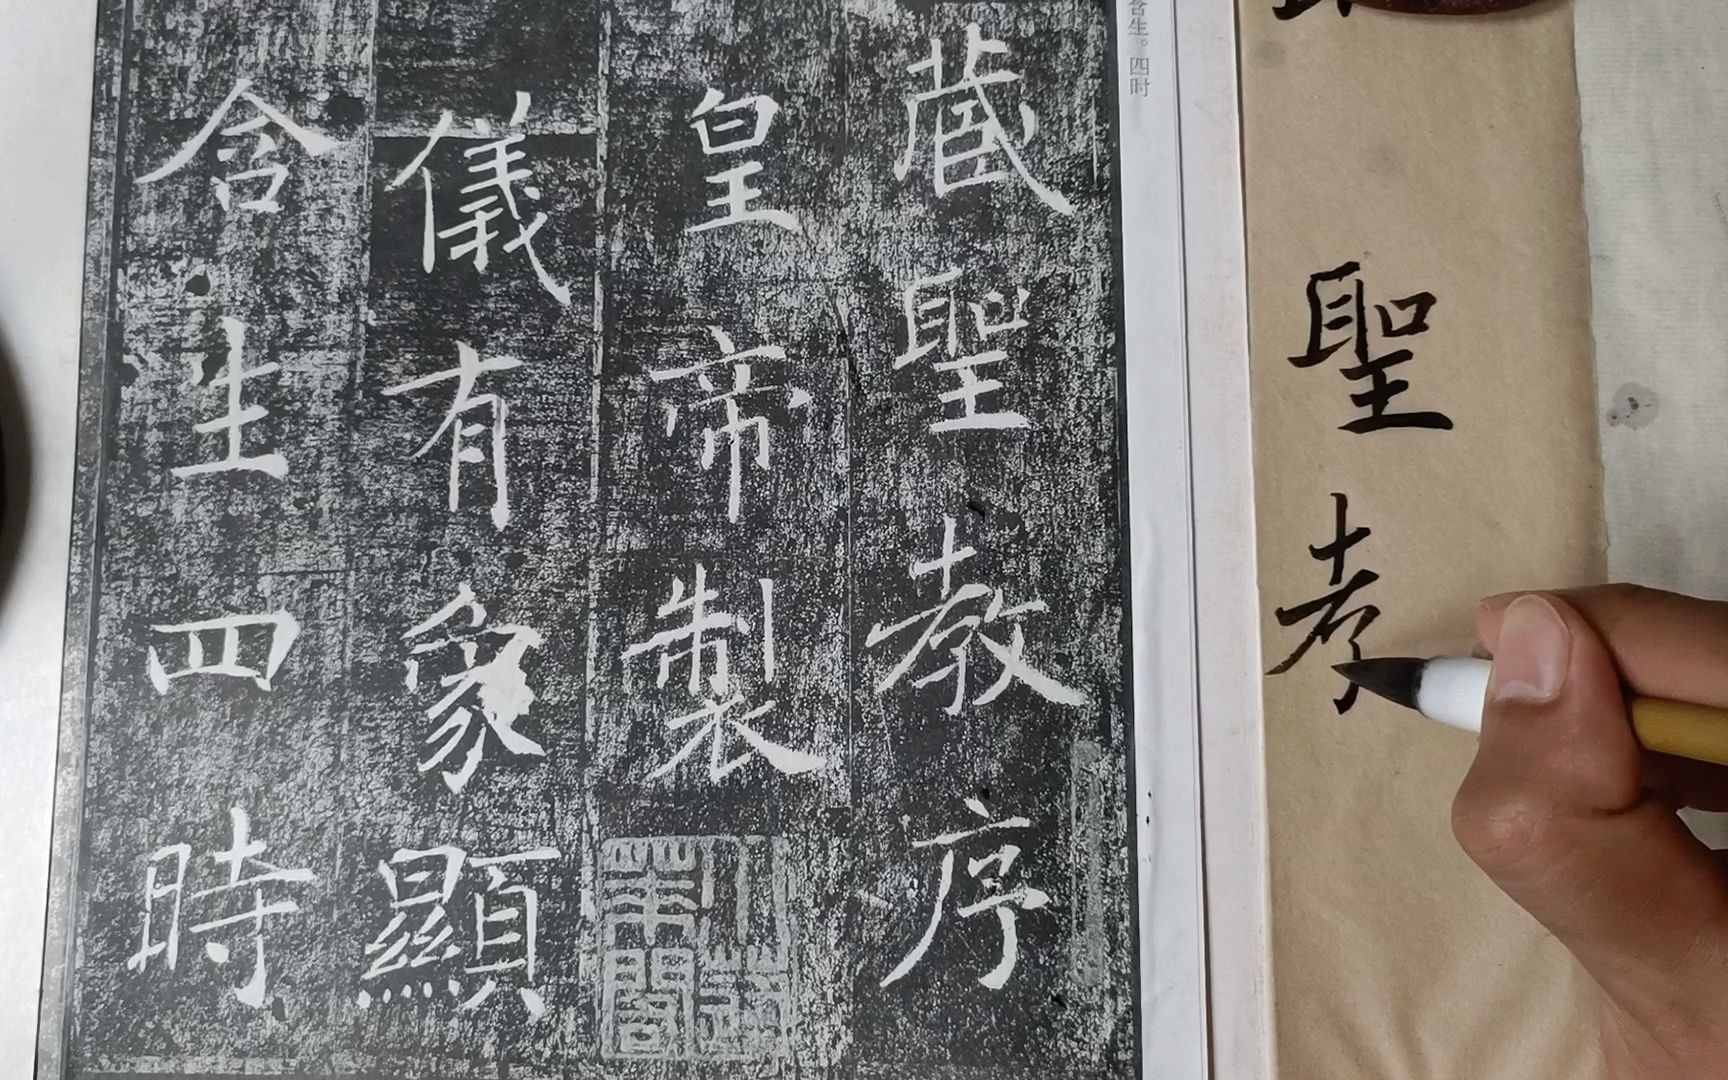 蔵聖教序
皇帝製
儀有象顯
含生四時
含生。四时
聖孝